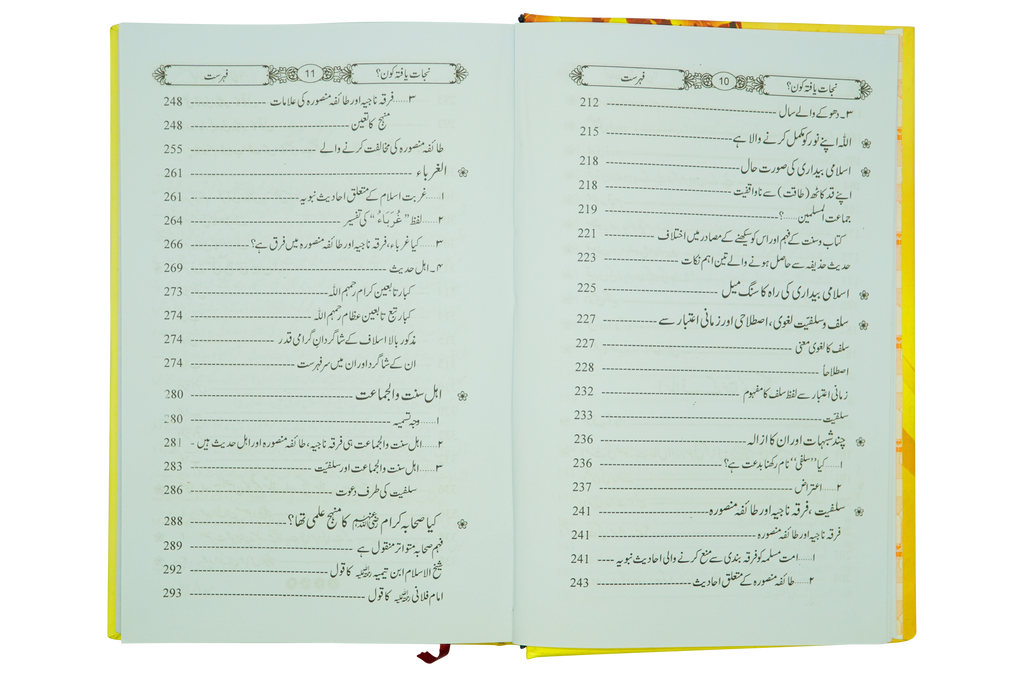 نجات یافتہ کون؟ 10 فہرست
۳۔ دھوکے والے سال ------ 212
اللہ اپنے نور کو مکمل کرنے والا ہے ------ 215
اسلامی بیداری کی صورت حال ------ 218
اپنے قد کاٹھ (طاقت) سے ناواقفیت ------ 218
جماعت المسلمین.....؟ ------ 219
کتاب و سنت کے فہم اور اس کو سیکھنے کے مصادر میں اختلاف ------ 221
حدیث حذیفہ سے حاصل ہونے والے تین اہم نکات ------ 223
اسلامی بیداری کی راہ کا سنگ میل ------ 225
سلف و سلفیت لغوی، اصطلاحی اور زمانی اعتبار سے ------ 227
سلف کا لغوی معنی ------ 227
اصطلاحاً ------ 228
زمانی اعتبار سے لفظ سلف کا مفہوم ------ 232
سلفیت ------ 233
چند شبہات اور ان کا ازالہ ------ 236
۱.....کیا ”سلفی“ نام رکھنا بدعت ہے؟ ------ 236
۲.....اعتراض ------ 237
سلفیت، فرقہ ناجیہ اور طائفہ منصورہ ------ 241
فرقہ ناجیہ اور طائفہ منصورہ ------ 241
۱.....امت مسلمہ کو فرقہ بندی سے منع کرنے والی احادیث نبویہ ---- 241
۲.....طائفہ منصورہ کے متعلق احادیث ------ 243
نجات یافتہ کون؟ 11 فہرست
۳.....فرقہ ناجیہ اور طائفہ منصورہ کی علامات ------ 248
منہج کا تعین ------ 248
طائفہ منصورہ کی مخالفت کرنے والے ------ 255
الغرباء ------ 261
۱.....غربت اسلام کے متعلق احادیث نبویہ ------ 261
۲.....لفظ ”غُرَبَاءُ“ کی تفسیر ------ 264
۳.....کیا غرباء، فرقہ ناجیہ اور طائفہ منصورہ میں فرق ہے؟ ------ 266
۴۔ اہل حدیث ------ 269
کبار تابعین کرام رحمہم اللہ ------ 273
کبار تبع تابعین عظام رحمہم اللہ ------ 274
مذکور بالا اسلاف کے شاگردانِ گرامی قدر ------ 274
ان کے شاگرد اور ان میں سر فہرست ------ 274
اہل سنت والجماعت ------ 280
۱.....وجہ تسمیہ ------ 280
۲.....اہل سنت والجماعت ہی فرقہ ناجیہ، طائفہ منصورہ اور اہل حدیث ہیں - 281
۳.....اہل سنت والجماعت اور سلفیت ------ 283
سلفیت کی طرف دعوت ------ 286
کیا صحابہ کرام رضی اللہ عنہم کا منہج علمی تھا؟ ------ 288
فہم صحابہ متواتر منقول ہے ------ 289
شیخ الاسلام ابن تیمیہ رحمہ اللہ کا قول ------ 292
امام فلانی رحمہ اللہ کا قول ------ 293